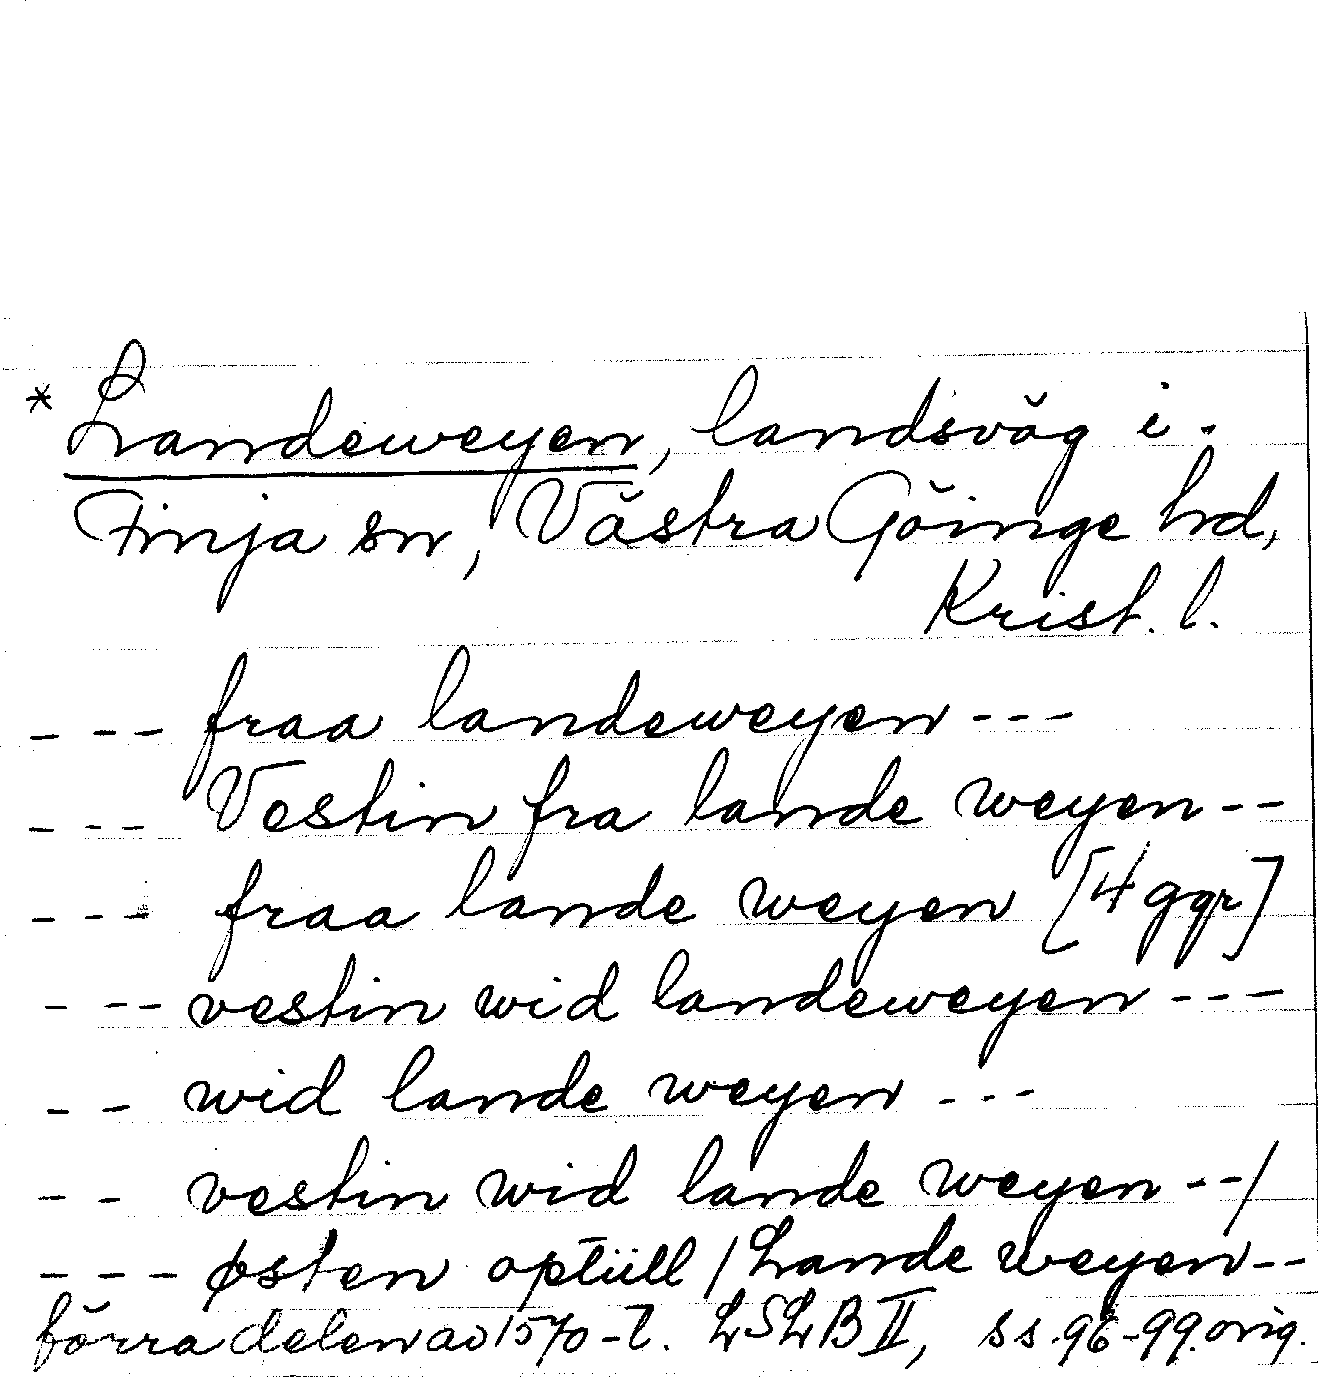 * Landeweyen, landsväg i.
Finja sn, Västra Göinge hd,
Krist. l.
--- fraa landeweyen ---
--- Vestin fra lande weyen --
--- fraa lande weyen [4 ggr]
--- vestin wid landeweyen ---
-- wid lande weyen ---
-- vestin wid lande weyen --/
--- østen optüll / Lande weyen --
förra delen av 1570-t. LSLB II, ss. 96-99. orig.